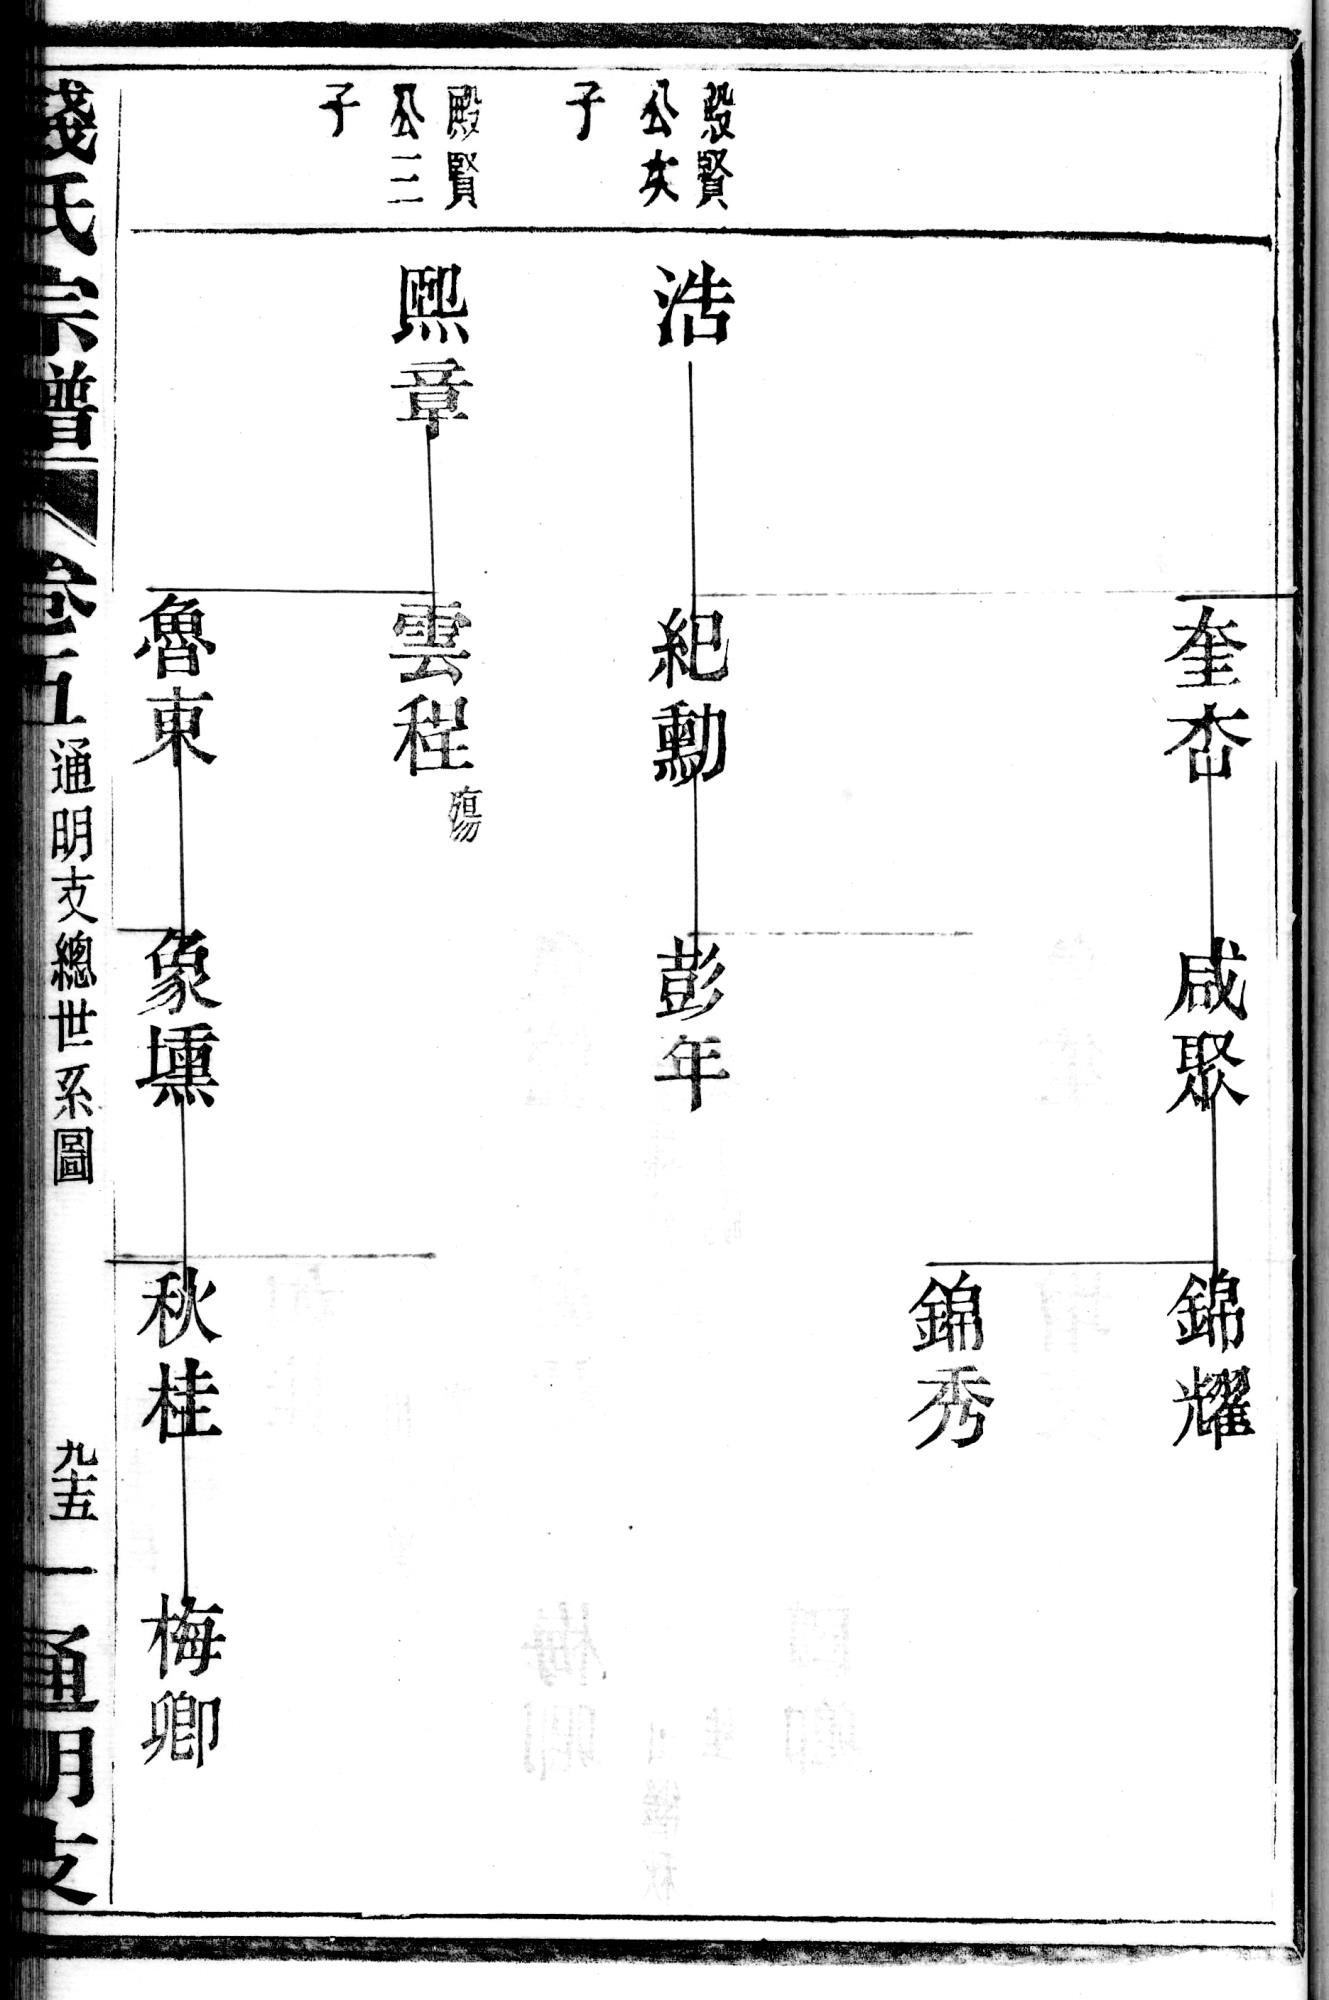 殿賢
公次
子
殿賢
公三
子
奎
咸聚
錦耀
錦秀
浩
紀勳
彭年
熙章
雲程 殤
魯東
象壎
秋桂
梅卿
錢氏宗譜
卷五 通明支總世系圖
九十五
一
通明支